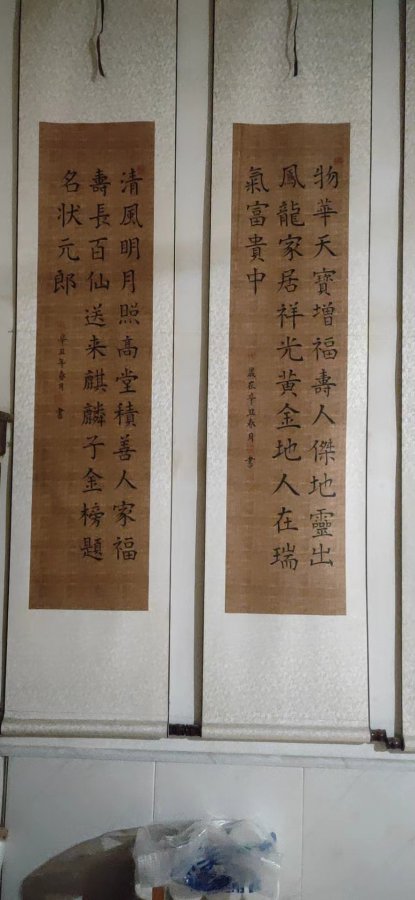 物華天寶增福壽人傑地靈出
鳳龍家居祥光黃金地人在瑞
氣富貴中
歲在辛丑春月 書
清風明月照高堂積善人家福
壽長百仙送来麒麟子金榜題
名状元郎
辛丑年春月 書